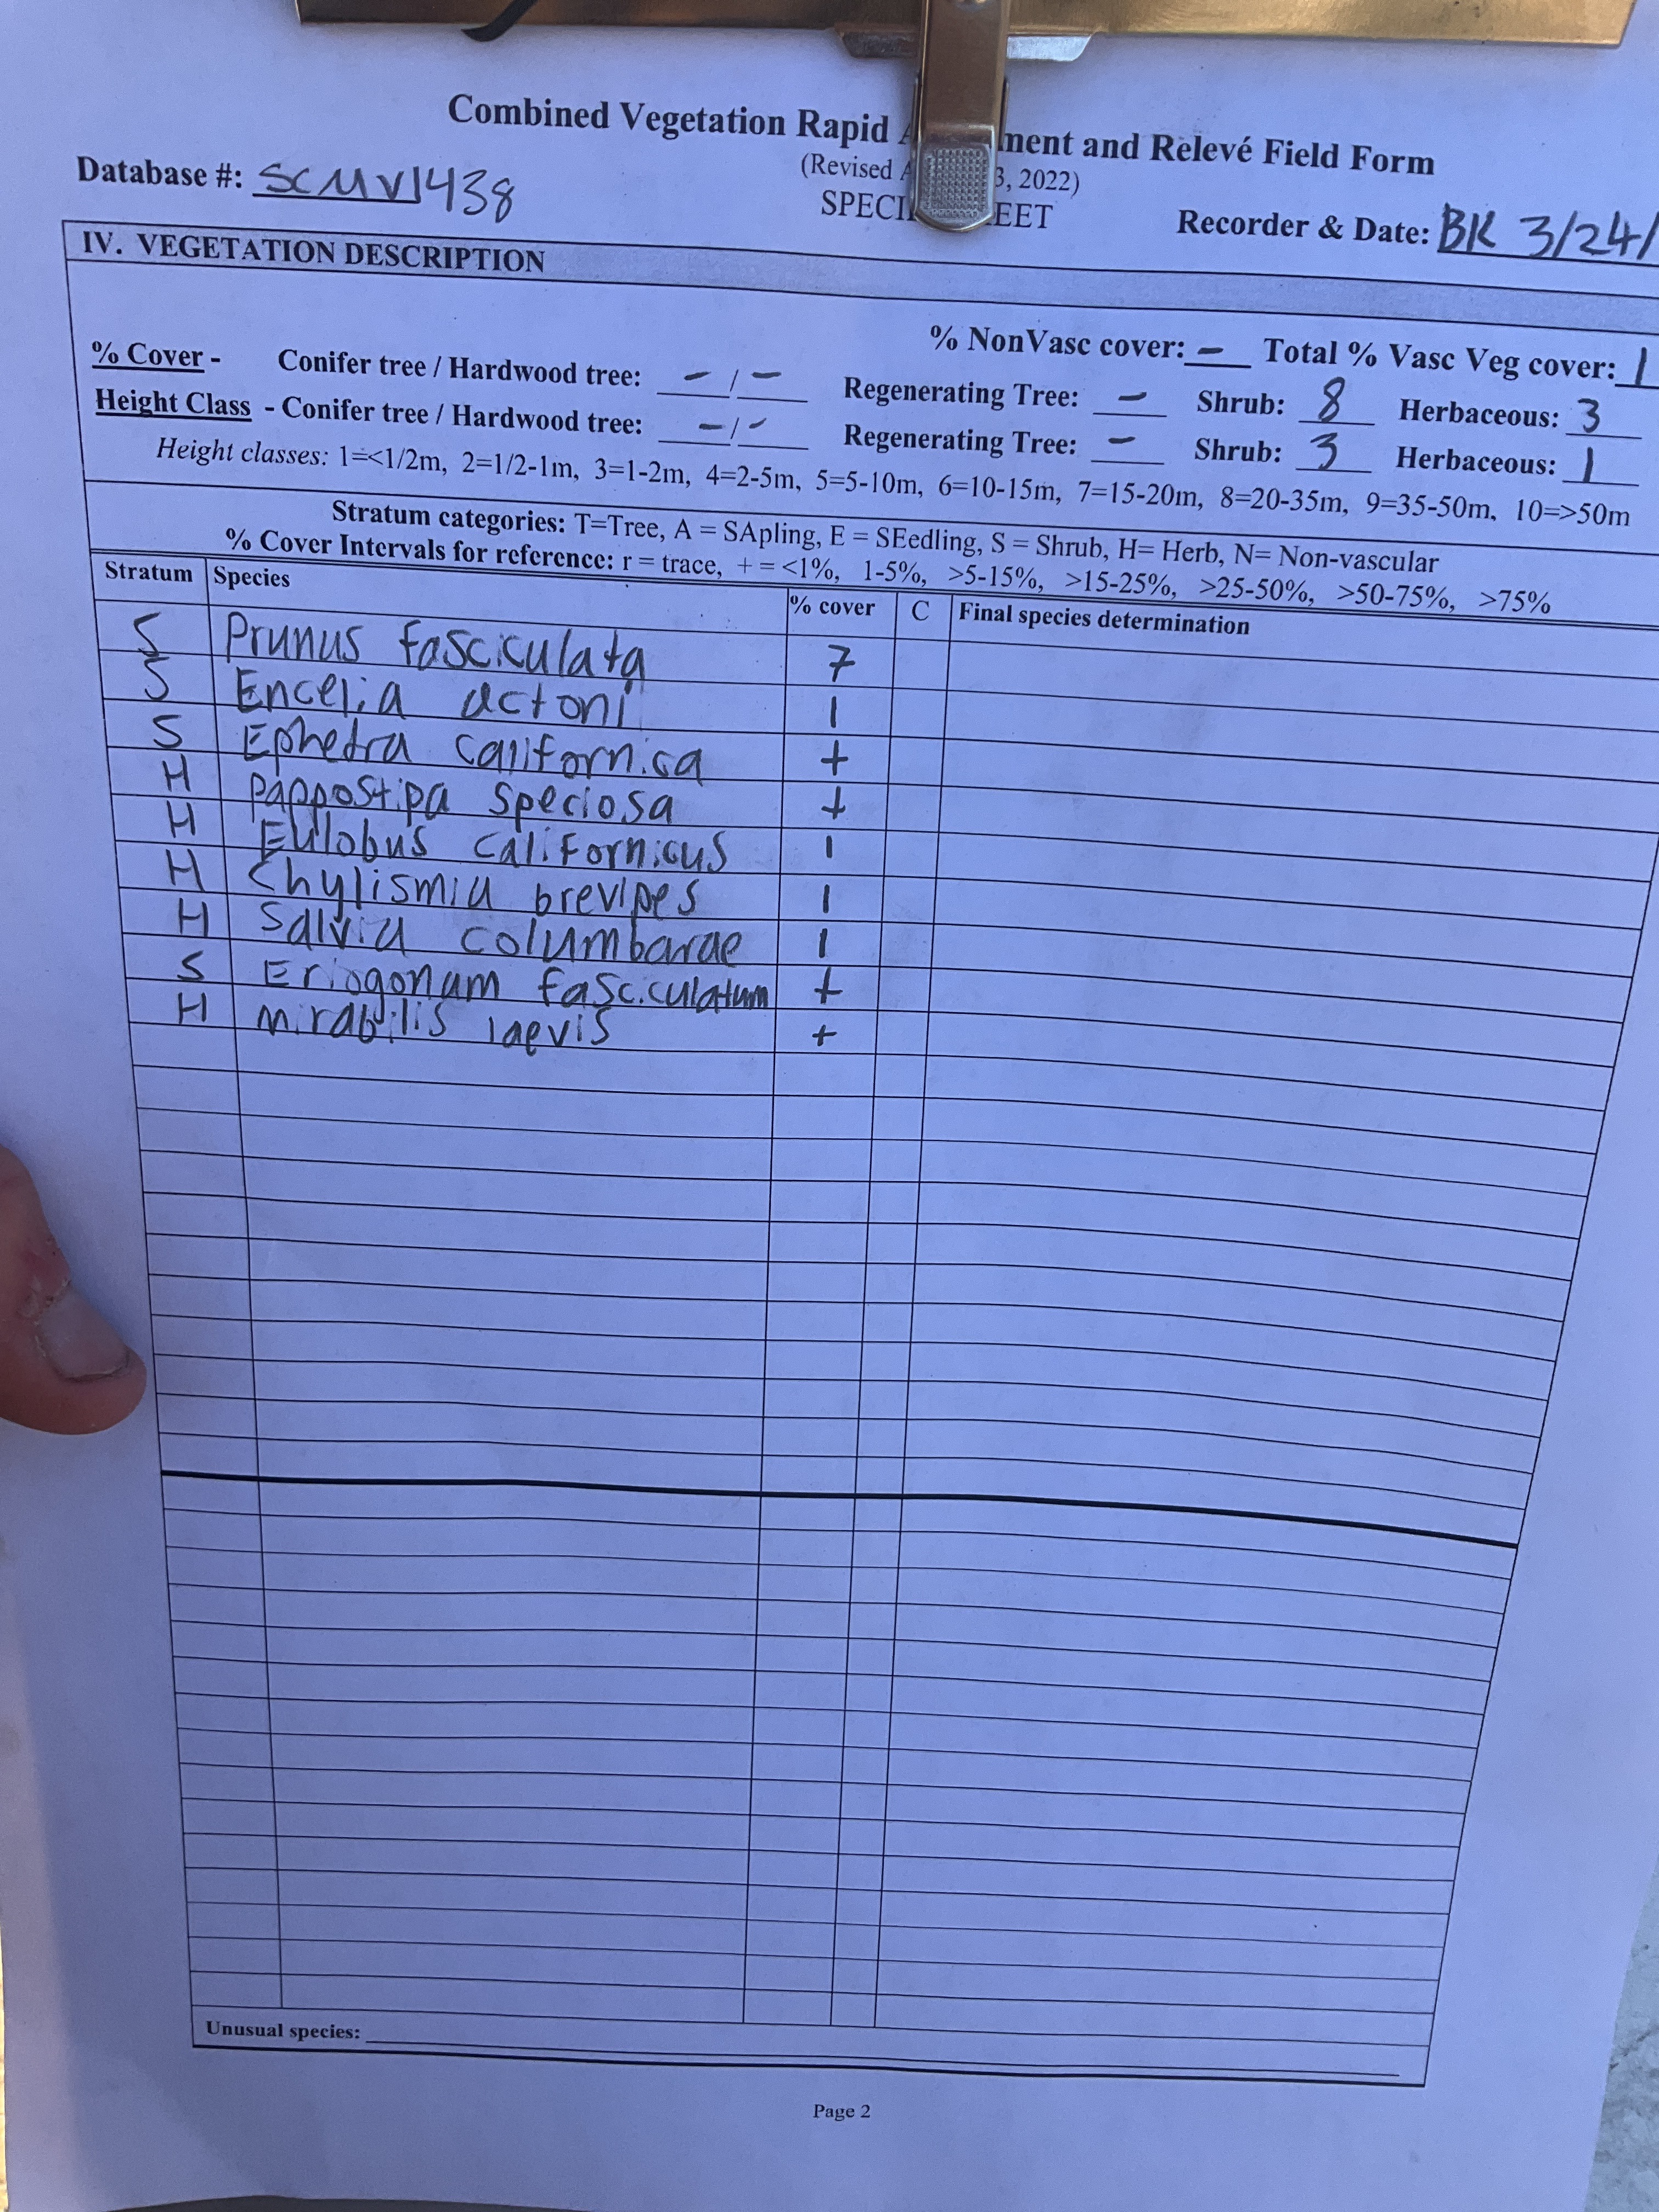 Combined Vegetation Rapid ment and Relevé Field Form
(Revised 3, 2022)
Database #: SCMV1438 SPECI EET Recorder & Date: BK 3/24/
IV. VEGETATION DESCRIPTION
% NonVasc cover: - Total % Vasc Veg cover: 1
% Cover - Conifer tree / Hardwood tree: - / - Regenerating Tree: - Shrub: 8 Herbaceous: 3
Height Class - Conifer tree / Hardwood tree: - / - Regenerating Tree: - Shrub: 3 Herbaceous: 1
Height classes: 1=<1/2m, 2=1/2-1m, 3=1-2m, 4=2-5m, 5=5-10m, 6=10-15m, 7=15-20m, 8=20-35m, 9=35-50m, 10=>50m
Stratum categories: T=Tree, A = SApling, E = SEedling, S = Shrub, H= Herb, N= Non-vascular
% Cover Intervals for reference: r = trace, + = <1%, 1-5%, >5-15%, >15-25%, >25-50%, >50-75%, >75%
Stratum Species % cover C Final species determination
S Prunus fasciculata 7
S Encelia actoni 1
S Ephedra californica +
H Pappostipa speciosa +
H Eulobus californicus 1
H Chylismia brevipes 1
H Salvia columbarae 1
S Eriogonum fasciculatum +
H mirabilis laevis +
Unusual species:
Page 2